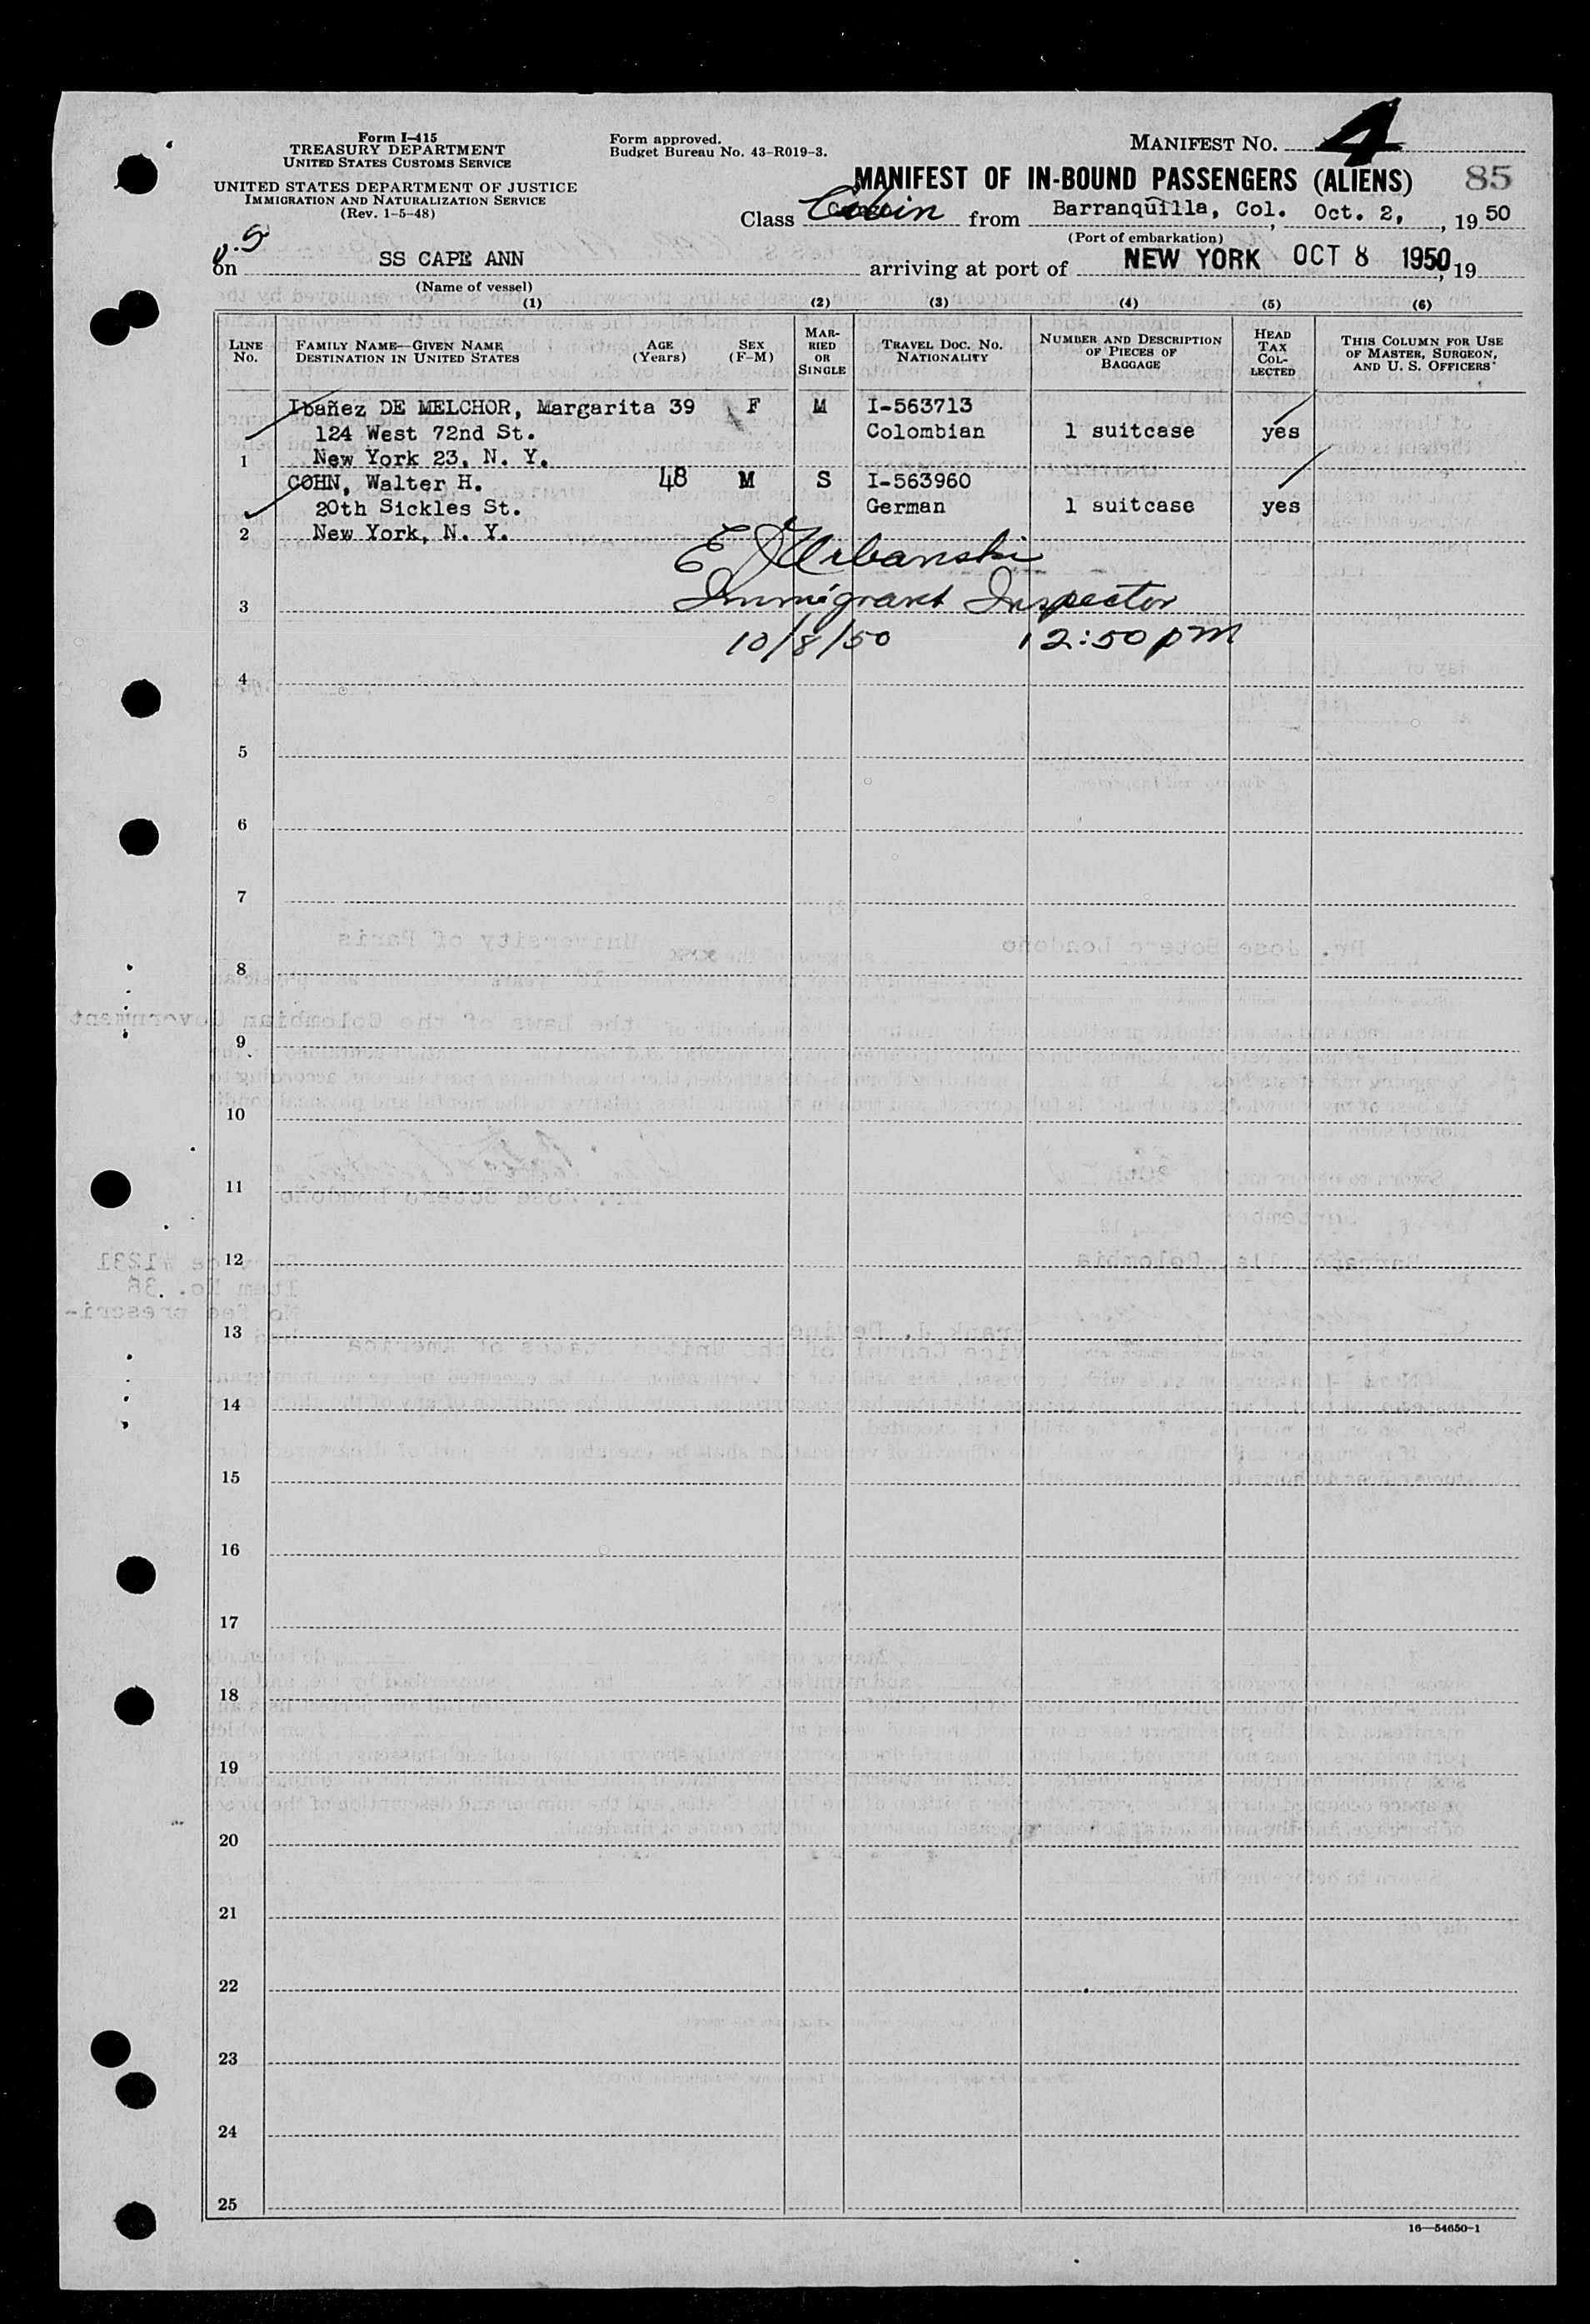 Form I-415
TREASURY DEPARTMENT
UNITED STATES CUSTOMS SERVICE
UNITED STATES DEPARTMENT OF JUSTICE
IMMIGRATION AND NATURALIZATION SERVICE
(Rev. 1-5-48)
Form approved.
Budget Bureau No. 43-R019-3.
MANIFEST NO. 4
MANIFEST OF IN-BOUND PASSENGERS (ALIENS) 85
Class Cabin from Barranquilla, Col. Oct. 2, , 19 50
(Port of embarkation)
on SS CAPE ANN arriving at port of NEW YORK OCT 8 1950, 19
(Name of vessel)
(1) (2) (3) (4) (5) (6)
LINE No. FAMILY NAME—GIVEN NAME DESTINATION IN UNITED STATES AGE (Years) SEX (F-M) MARRIED OR SINGLE TRAVEL DOC. NO. NATIONALITY NUMBER AND DESCRIPTION OF PIECES OF BAGGAGE HEAD TAX COLLECTED THIS COLUMN FOR USE OF MASTER, SURGEON, AND U. S. OFFICERS
Ibañez DE MELCHOR, Margarita 39 F M I-563713
124 West 72nd St. Colombian 1 suitcase yes
1 New York 23, N. Y.
COHN, Walter H. 48 M S I-563960
20th Sickles St. German 1 suitcase yes
2 New York, N. Y.
E J Urbanski
3 Immigrant Inspector
10/8/50 12:50 pm
4
5
6
7
8
9
10
11
12
13
14
15
16
17
18
19
20
21
22
23
24
25
16—54650-1